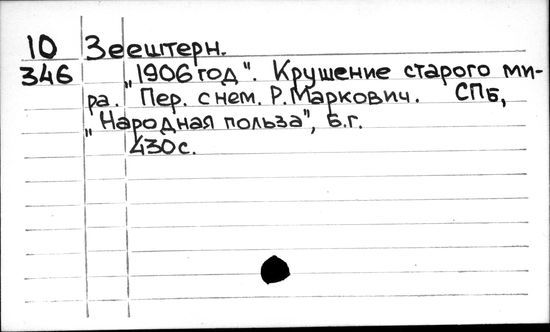 10 Зеештерн.
346 „1906 год". Крушение старого ми-
ра. Пер. с нем. Р. Маркович. СПб,
„Народная польза", б.г.
430 с.